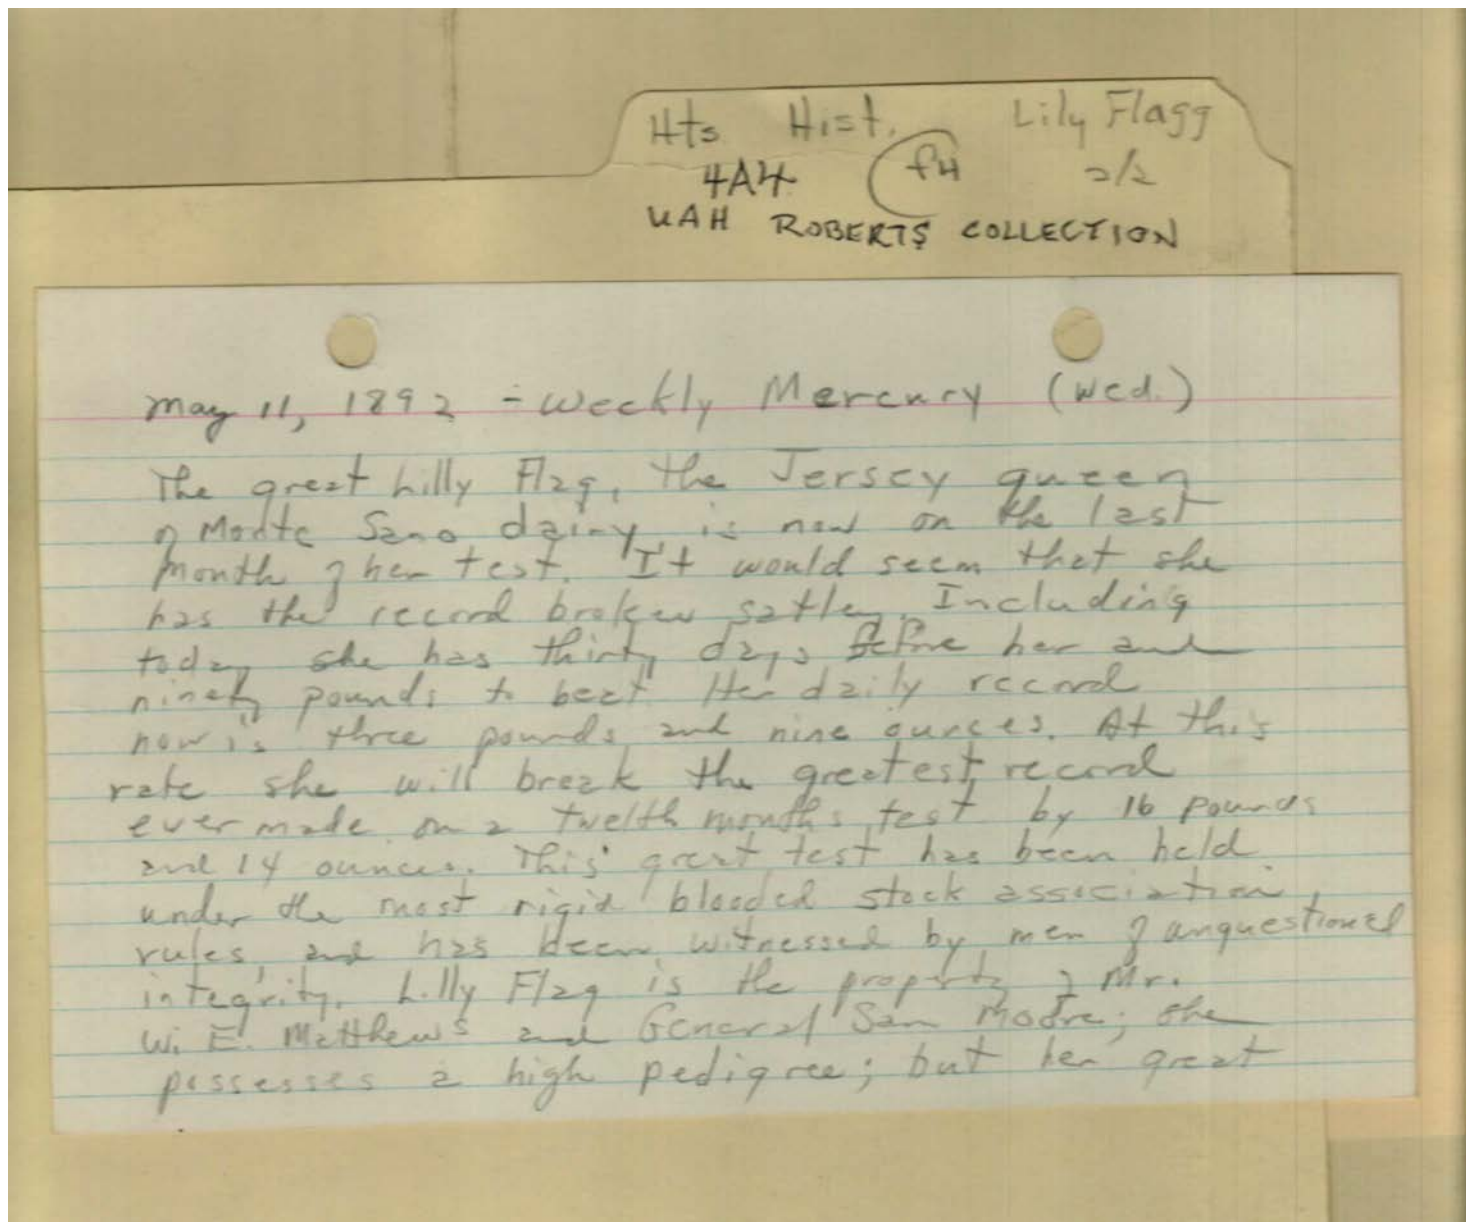 Hts Hist. Lily Flagg
4A4 f4 2/2
UAH ROBERTS COLLECTION
May 11, 1892 - Weekly Mercury (Wed.)
The great Lilly Flag, the Jersey queen
of Monte Sano dairy, is now on the last
month of her test. It would seem that she
has the record broken Including
today she has thirty days before her and
ninety pounds to beat. Her daily record
now is three pounds and nine ounces. At this
rate she will break the greatest record
ever made on a twelth months test by 16 pounds
and 14 ounces. This great test has been held
under the most rigid blooded stock association
rules, and has been witnessed by men of unquestioned
integrity. Lilly Flag is the property of Mr.
W. E. Matthews and General Sam Moore; she
possesses a high pedigree; but her great